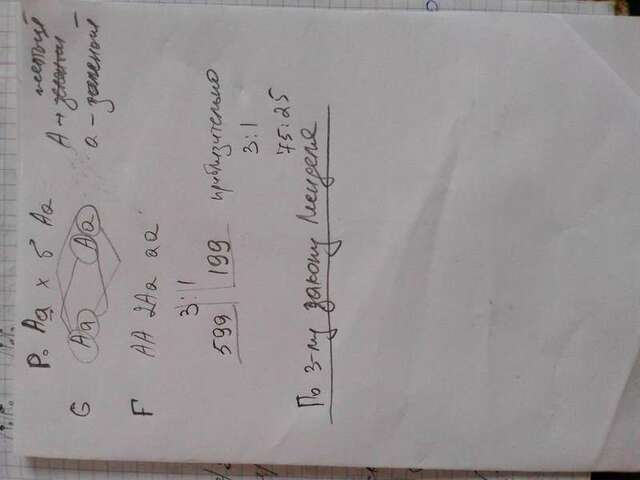 P. Aa x б Aa
A – зеленый желтый
a – зеленый
G Aa Aa
F AA 2Aa aa
3:1
599 199 приблизительно
3:1
75:25
По 3-му закону Менделя